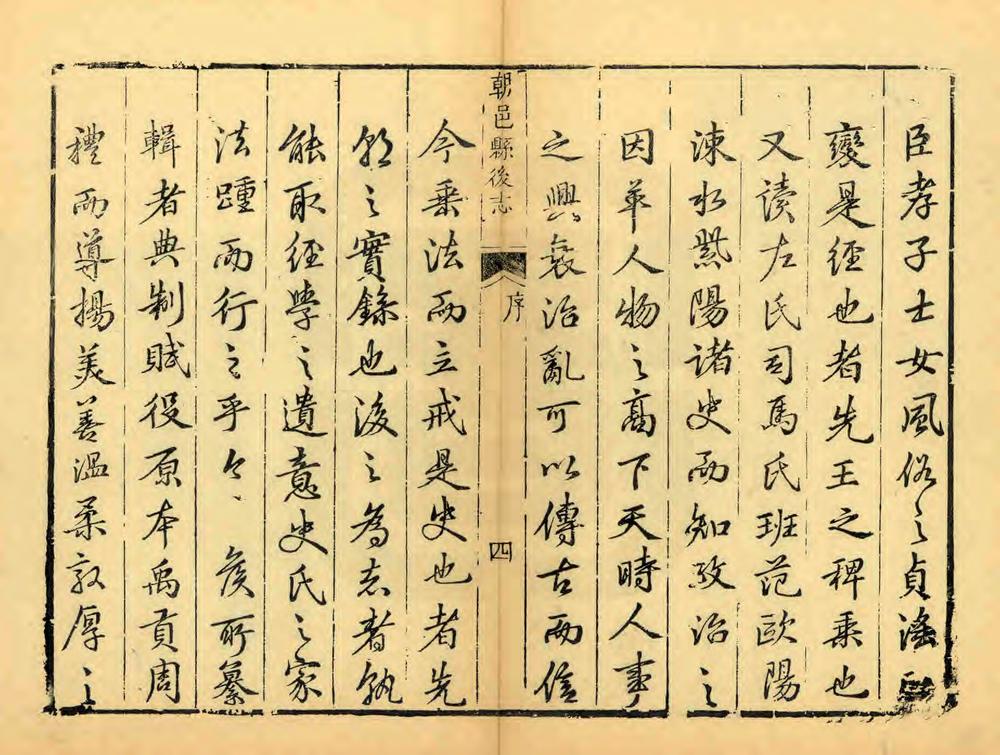 臣孝子士女風俗之貞淫正
變是經也者先王之稗乘也
又讀左氏司馬氏班范歐陽
涑水紫陽諸史而知政治之
因革人物之高下天時人事
之興衰治亂可以傳古而信
朝邑縣後志
序
四
今垂法而立戒是史也者先
朝之實錄也後之為志者孰
能取經學之遺意史氏之家
法踵而行之乎今 侯所纂
輯者典制賦役原本禹貢周
禮而導揚美善溫柔敦厚之